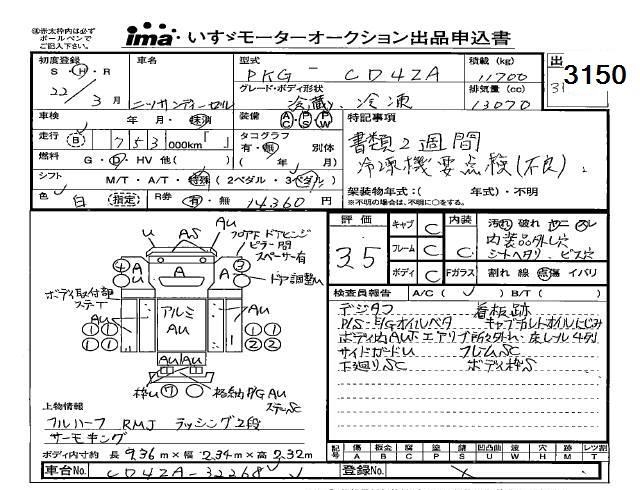 ㊟赤太枠内は必ず
ボールペンで
ご記入下さい。
ima・いすゞモーターオークション出品申込書
初度登録 S・H・R 22年 3月
車名 ニッサンディーゼル
型式 PKG-CD4ZA
積載(kg) 11700
出 3150
グレード・ボディ形状 冷蔵、冷凍
排気量(cc) 13070
車検 年・月・抹消
装備 AC・PS・PW
特記事項
走行 753,000km『 』
タコグラフ 有・無 別体
書類2週間
燃料 G・D・HV 他( )
( 年 月)
冷凍機要点検(不良)、
シフト M/T・A/T・特殊(2ペダル・3ペダル)
架装物年式:( 年式)・不明
※不明の場合は、不明に○をする。
色 白 (指定) R券 有・無 14,360円
評価 3.5
キャブ C
フレーム C
ボディ C
内装 C
Fガラス
汚れ 破れ
内装品外し穴
シートヘタリ、ビス穴
割れ 線 点傷 イバリ
検査員報告 A/C( ) B/T( )
デジタコ 看板跡
P/S・E/Gオイルベタ キャブチルトオイルにじみ
サイドガードU フレームSC
下廻りSC ボディ枠S
U AS AU
フロア下 ドアヒンジ
ピラー間
スペーサー有
A A A
ドア調整U
ボディ取付部
ステーT
AU アルミ AU AU
AU AU
枠U 格納P/G AU
ステーSC
上物情報
フルハーフ RMJ ラッシング2段
サーモキング
ボディ内寸約 長 9.36m×幅 2.34m×高 2.32m
記号 傷 A 板金 B 腐 C 塗 P 錆 S 凹凸曲 U 波 W 穴 H 跡 M レツ割 T
車台No. CD4ZA-32268
登録No.